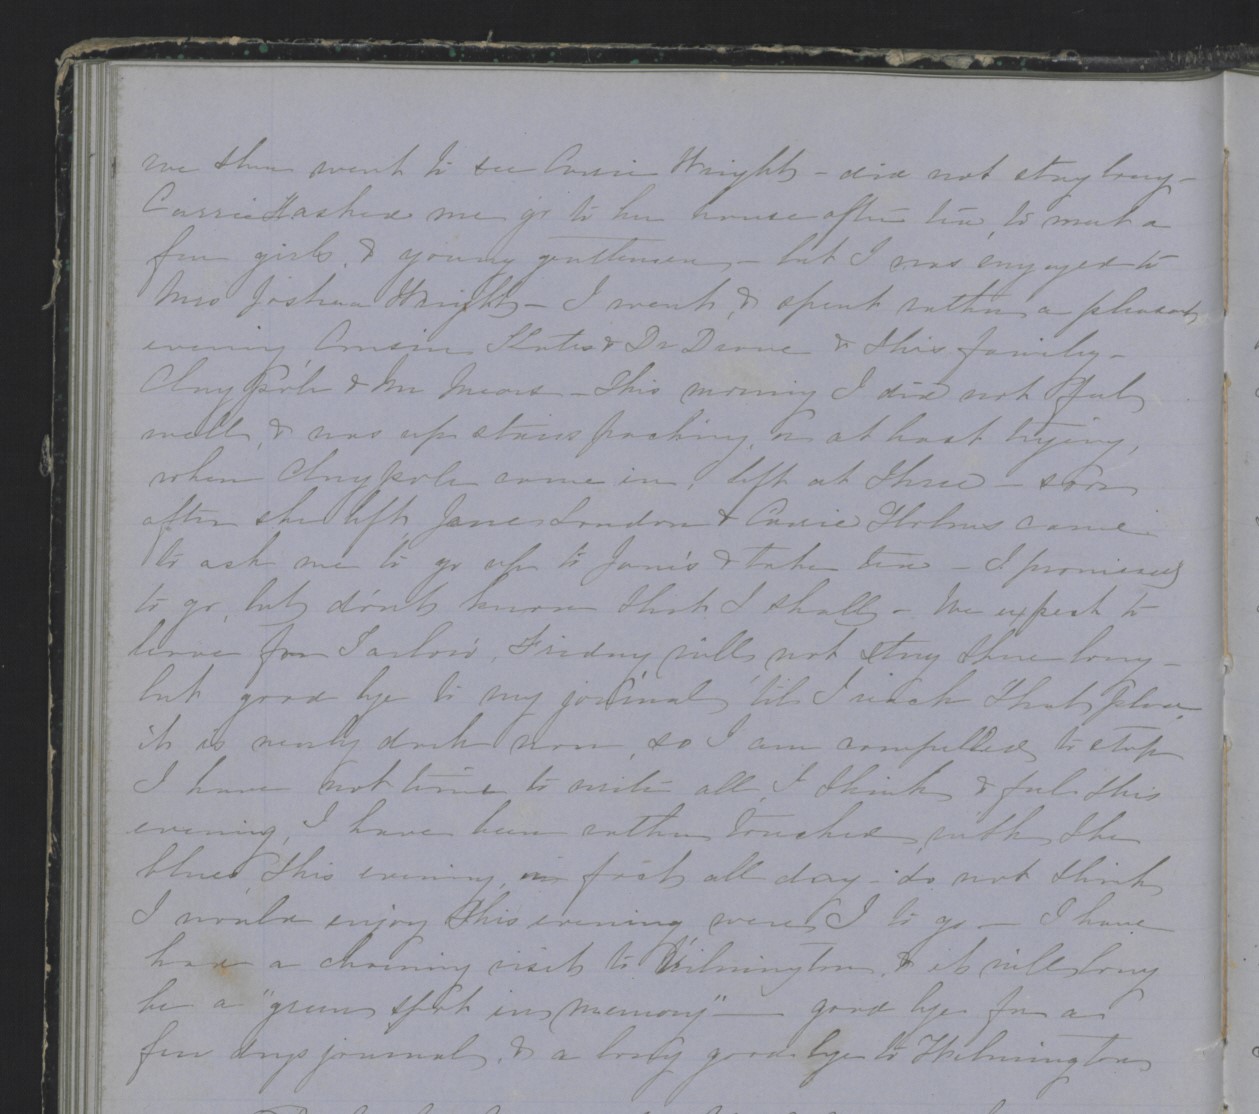 we then went to see Carrie Wright - did not stay long -
Carrie H asked me go to her house after tea, to meet a
few girls, & young gentlemen - but I was engaged to
Mrs Joshua Wright - I went, & spent rather a pleasant
evening, Cousin Kate & Dr Drane & this family -
Claypole & Mr Mears - This morning I did not feel
well, & was up stairs packing, or at least trying,
when Claypole came in, left at three - soon
after she left, Jane London & Carrie Holmes came
to ask me to go up to Jane's & take tea - I promised
to go, but don't know that I shall - We expect to
leave for Tarboro', Friday, will not stay there long -
but good bye to my journal, 'till I reach that place,
it is nearly dark now, so I am compelled to stop
I have not time to write all I think & feel this
evening, I have been rather touched with the
blues, this evening, in fact, all day - do not think
I would enjoy this evening, were I to go - I have
had a charming visit to Wilmington, & it will long
be a "green spot in memory" — good bye for a
few days journal, & a long good-bye to Wilmington